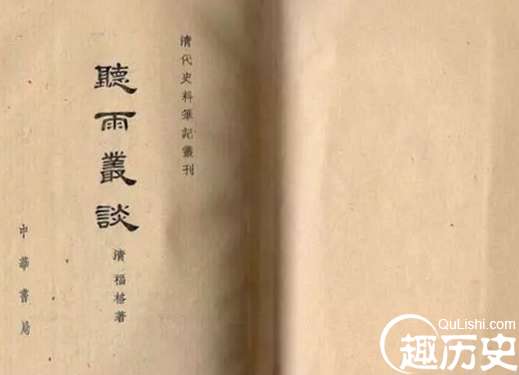 清代史料筆記叢刊
聽雨叢談
清 福格著
中華書局
QuLishi.com
趣历史